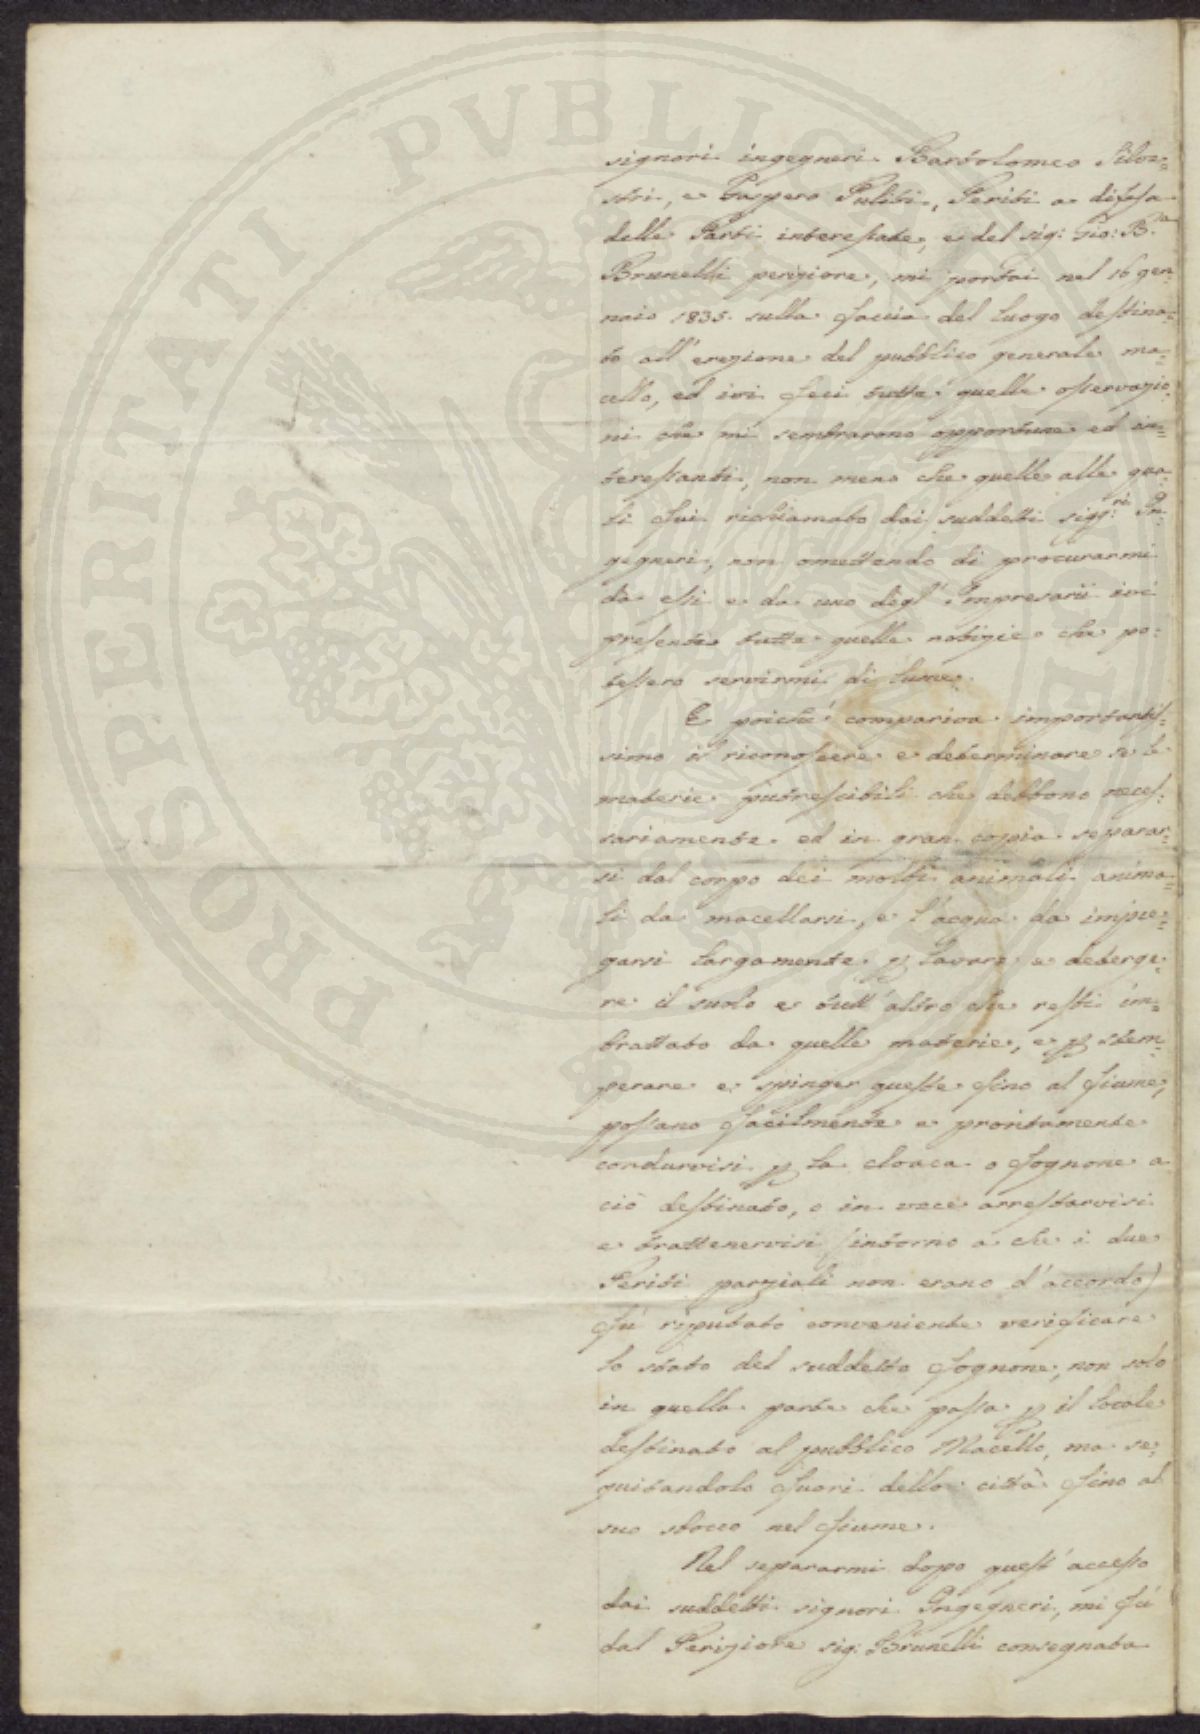 PROSPERITATI PVBLICAE
signori ingegneri Bartolomeo Silve=
stri, e Gaspero Puliti, Periti a difesa
delle Parti interessate, e del sig: Gio: B.ª
Brunelli periziore, mi portai nel 16 gen
naio 1835. sulla faccia del luogo destina=
to all'erezione del pubblico generale ma=
cello, ed ivi feci tutte quelle osservazio
ni che mi sembrarono opportune ed in=
teressanti, non meno che quelle alle qua
li fui richiamato dai suddetti sigg:ri In
gegneri, non omettendo di procurarmi
da essi e da uno degl'Impresarii ivi
presente tutte quelle notizie che po=
tessero servirmi di lume.
E poichè compariva importantis=
simo il riconoscere e determinare se le
materie putrescibili che debbono neces=
sariamente ed in gran copia separar=
si dal corpo dei molti animali anima=
li da macellarsi, e l'acqua da impie=
garsi largamente p lavare e deterge=
re il suolo e tutt'altro che resti im=
brattato da quelle materie, e p stem=
perare e spinger queste fino al fiume,
possano facilmente e prontamente
condurvisi p la cloaca o fognone a
ciò destinato, o in vece arrestarvisi
e trattenervisi (intorno a che i due
Periti parziali non erano d'accordo)
fù riputato conveniente verificare
lo stato del suddetto fognone, non solo
in quella parte che passa p il locale
destinato al pubblico Macello, ma se=
guitandolo fuori della città fino al
suo sbocco nel fiume.
Nel separarmi dopo quest'accesso
dai suddetti signori Ingegneri, mi fù
dal Periziore sig: Brunelli consegnata